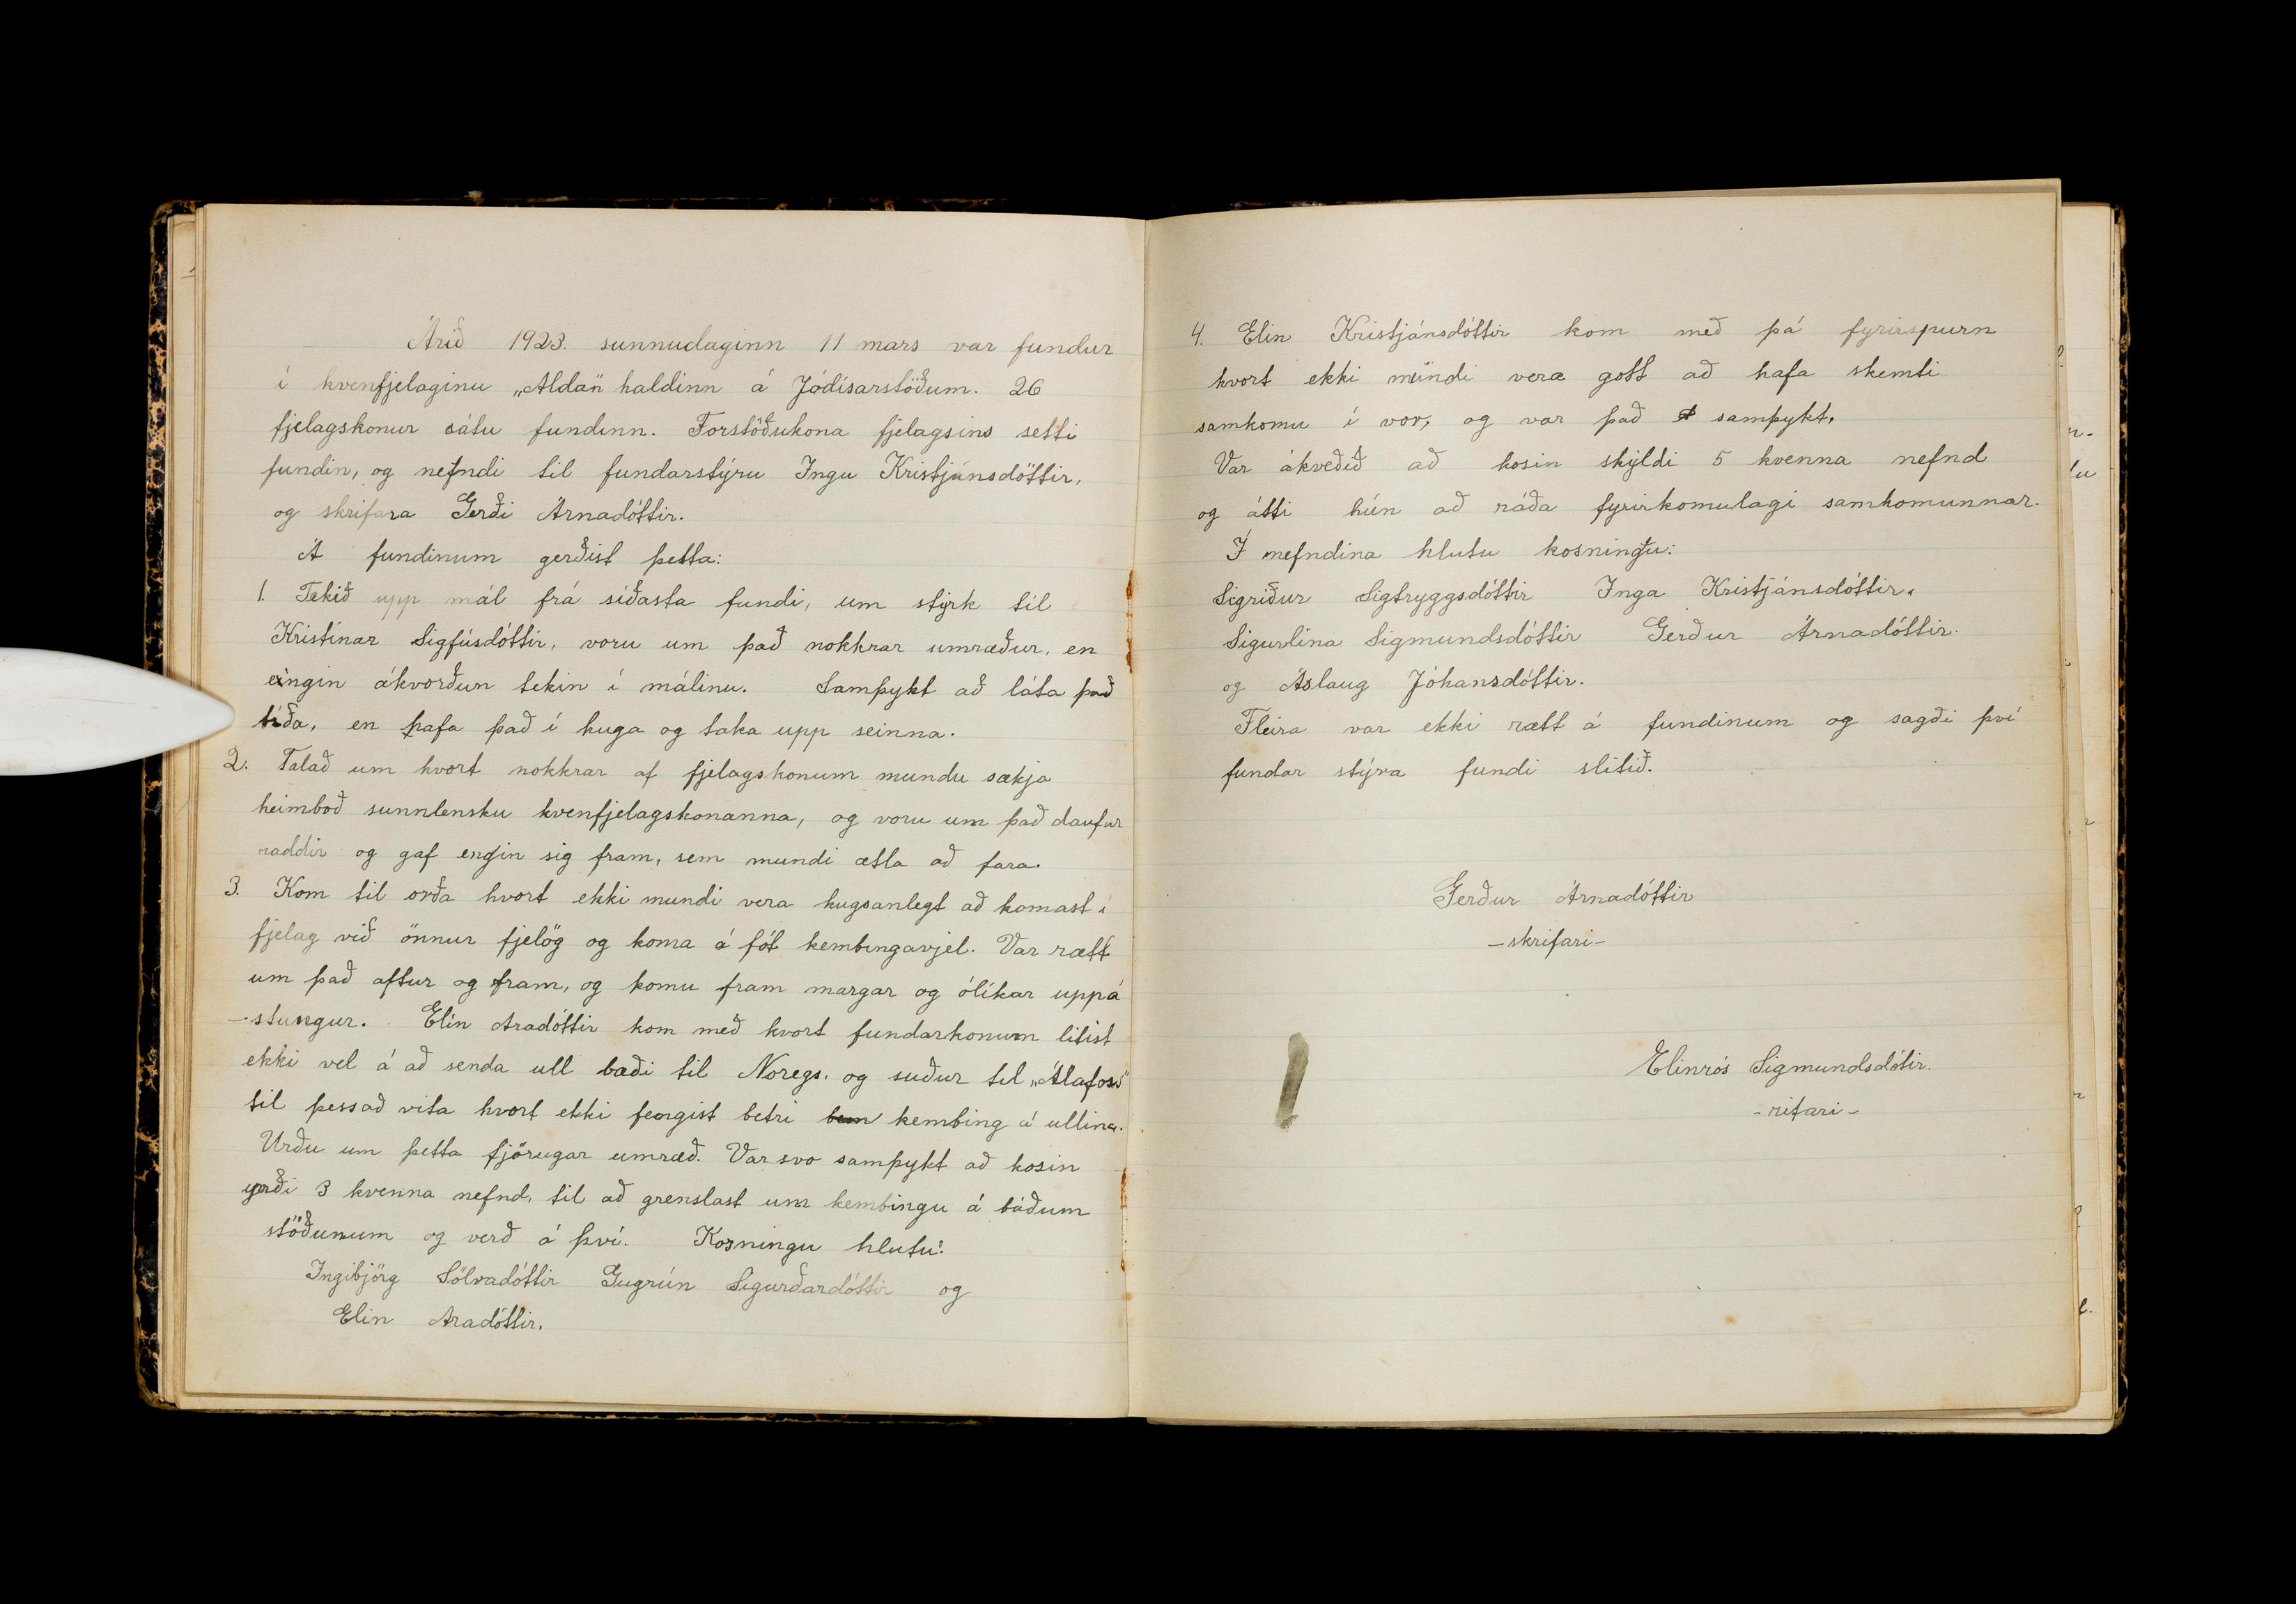 Árið 1923. sunnudaginn 11 mars var fundur
í kvenfjelaginu „Aldan" haldinn á Jódísarstöðum. 26
fjelagskonur sátu fundinn. Forstöðukona fjelagsins setti
fundin, og nefndi til fundarstýru Ingu Kristjánsdóttir,
og skrifara Gerði Árnadóttir.
Á fundinum gerðist þetta:
1. Tekið upp mál frá síðasta fundi, um styrk til
Kristínar Sigfúsdóttir, voru um það nokkrar umræður, en
eingin ákvorðun tekin í málinu. Samþykt að láta það
bíða, en hafa það í huga og taka upp seinna.
2. Talað um hvort nokkrar af fjelagskonum mundu sækja
heimboð sunnlensku kvenfjelagskonanna, og voru um það daufur
raddir og gaf engin sig fram, sem mundi ætla að fara.
3. Kom til orða hvort ekki mundi vera hugsanlegt að komast í
fjelag við önnur fjelög og koma á fót kembingavjel. Var rætt
um það aftur og fram, og komu fram margar og ólíkar uppá
-stungur. Elín Aradóttir kom með hvort fundarkonum litist
ekki vel á að senda ull bæði til Noregs. og suður til „Álafoss"
til þess að vita hvort ekki feingist betri kembing á ullina.
Urðu um þetta fjörugar umræð. Var svo samþykt að kosin
yrði 3 kvenna nefnd, til að grenslast um kembingu á báðum
stöðunum og verð á því. Kosningu hlutu:
Ingibjörg Sölvadóttir Gugrún Sigurðardóttir og
Elin Aradóttir.
4. Elin Kristjánsdóttir kom með þá fyrirspurn
hvort ekki mundi vera gott að hafa skemti
samkomu í vor, og var það samþykt.
Var ákveðið að kosin skyldi 5 kvenna nefnd
og átti hún að ráða fyrirkomulagi samkomunnar.
Í nefndina hlutu kosningu:
Sigríður Sigtryggsdóttir Inga Kristjánsdóttir.
Sigurlína Sigmundsdóttir Gerður Árnadóttir.
og Áslaug Jóhansdóttir.
Fleira var ekki rætt á fundinum og sagði því
fundar stýra fundi slitið.
Gerður Árnadóttir
-skrifari-
Elinrós Sigmundsdótir.
-ritari-